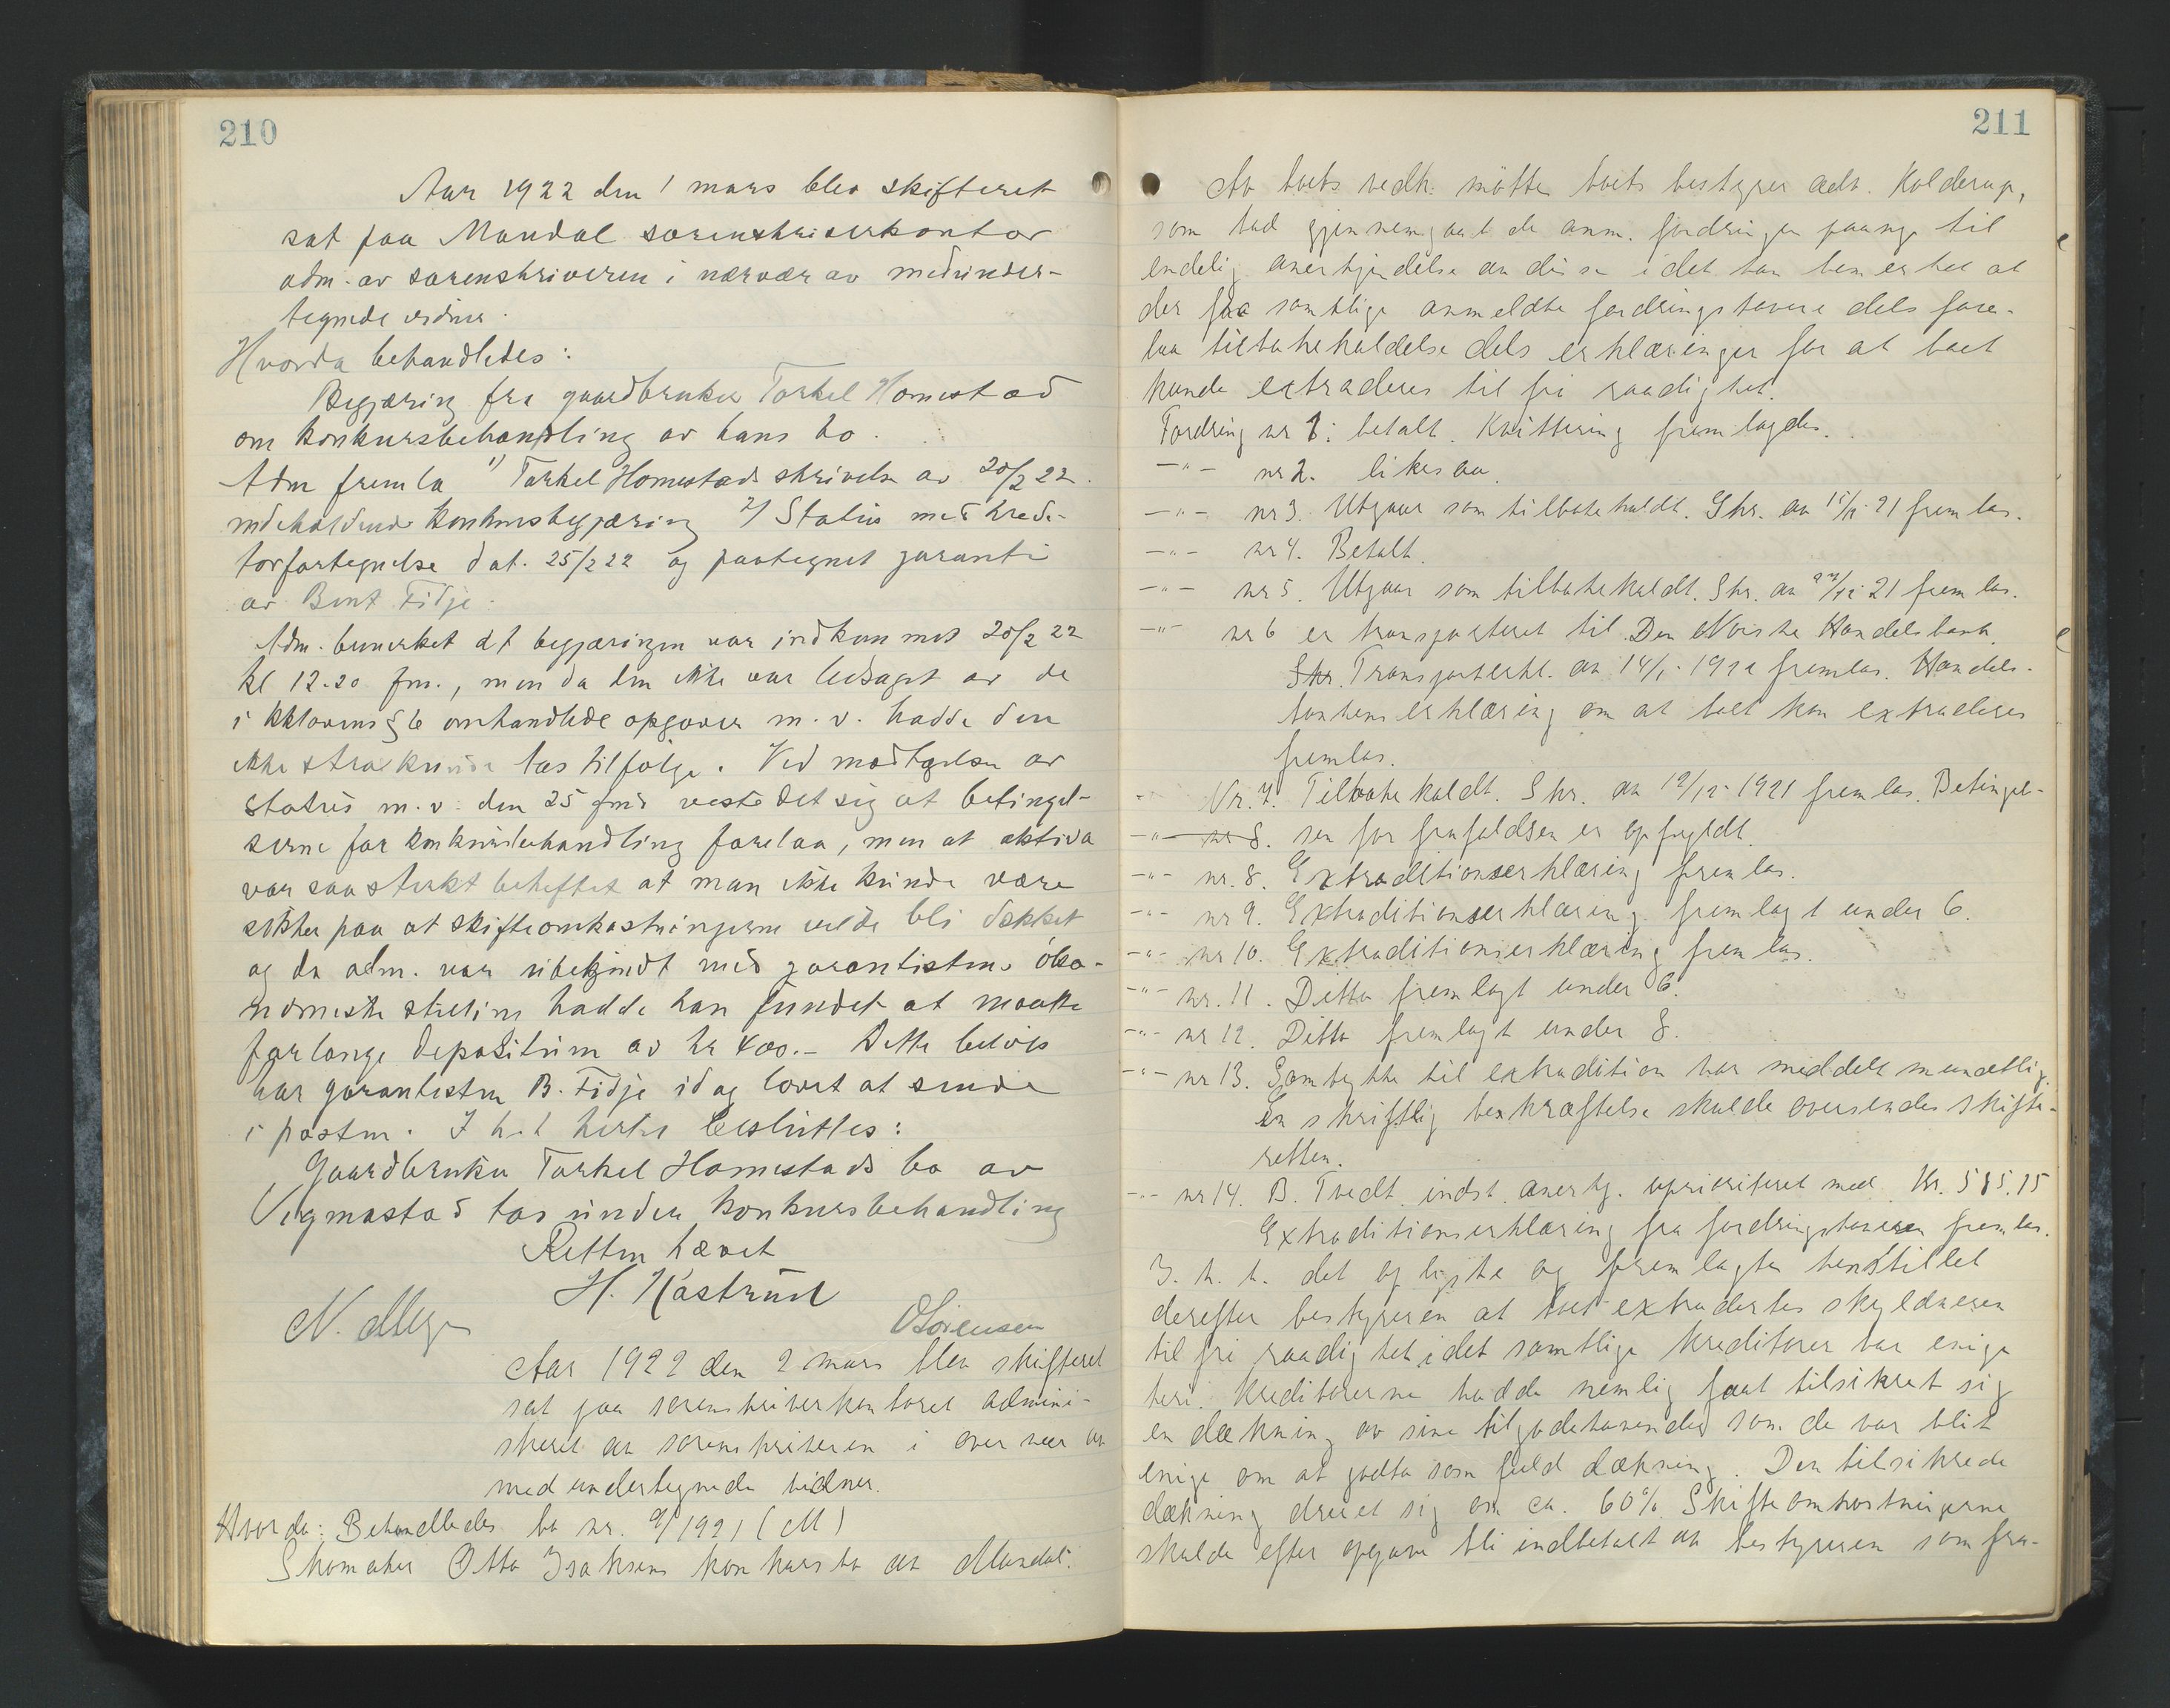 210
Aar 1922 den 1 mars blev skifteret
sat paa Mandal sorenskriverkontor
adm. av sorenskriveren i nærvær av medunder-
tegnede vidner.
Hvorda behandledes:
Begjæring fra gaardbruker Torkel Homestad
om konkursbehandling av hans bo.
Adm fremla 1) Torkel Homestads skrivelse av 20/2 22
indeholdende konkursbegjæring 2) Status med kredi-
torfortegnelse dat. 25/2 22 og paategnet garanti
av Bent Fidje.
Adm. bemerket at begjæringen var indkommet 20/2 22
kl 12.20 fm., men da den ikke var ledsaget av de
i kklovens § 6 omhandlede opgaver m.v. hadde den
ikke strax kunde tas tilfølge. Ved modtagelsen av
status m.v. den 25 fmd viste det sig at betingel-
serne for konkursbehandling forelaa, men at aktiva
var saa sterkt beheftet at man ikke kunde være
sikker paa at skifteomkostningerne vilde bli dækket
og da adm. var ubekjendt med garantistens øko-
nomiske stilling hadde han fundet at maatte
forlange depositum av kr 400.- Dette beløp
har garantisten B. Fidje idag lovet at sende
i posten. I h.t. hertil besluttes:
Gaardbruker Torkel Homestads bo av
Vigmostad tas under konkursbehandling
Retten hævet
H. Kastrud
N. Meyer OSørensen
Aar 1922 den 2 mars blev skifteret
sat paa sorenskriverkontoret admini-
streret av sorenskriveren i overvær av
medundertegnede vidner.
Hvorda: Behandledes bo nr. 9/1921 (M)
Skomaker Otto Isaksens konkursbo av Mandal.
211
Av boets vedk. møtte boets bestyrer adv. Kolderup,
som bad gjennemgaat de anm. fordringer paany til
endelig anerkjendelse av disse idet han bemerket at
der fra samtlige anmeldte fordringshavere dels fore-
laa tilbakekaldelse dels erklæringer for at boet
kunde extraderes til fri raadighet.
Fordring nr 1: betalt. Kvittering fremlagdes.
-"- nr 2. likesaa.
-"- nr 3. Utgaar som tilbakekaldt. Skr. av 15/12 21 fremlas.
-"- nr 4. Betalt.
-"- nr 5. Utgaar som tilbakekaldt. Skr. av /12 21 fremlas.
-"- nr 6 er transporteret til Den Norske Handelsbank.
Skr. Transporterkl. av 14/1 1922 fremlas. Handels-
bankens erklæring om at boet kan extraderes
fremlas.
Nr. 7. Tilbakekaldt. Skr. av 12/12 1921 fremlas. Betingel-
-"- nr 8. sen for frafaldsen er opfyldt.
-"- nr. 8. Extraditionserklæring fremlas.
-"- nr 9. Extraditionserklæring fremlagt under 6.
-"- nr 10. Extraditionserklæring fremlas.
-"- nr. 11. Ditto fremlagt under 6.
-"- nr 12. Ditto fremlagt under 8.
-"- nr 13. Samtykke til extradition har meddelt mundtlig.
En skriftlig bekræftelse skulde oversendes skifte-
retten.
-"- nr 14. B. Tvedt indst. anerkj. uprioriteret med Kr. 515.15
Extraditionserklæring fra fordringshaveren fremlas.
I. h. t. det oplyste og fremlagte henstillet
derefter bestyreren at boet extradertes skyldneren
til fri raadighet idet samtlige kreditorer var enige
heri. Kreditorerne hadde nemlig faat tilsikret sig
en dækning av sine tilgodehavender som de var blit
enige om at godta som fuld dækning. Den tilsikrede
dækning dreiet sig om ca. 60%. Skifteomkostningerne
skulde efter opgave bli indbetalt av bestyreren som fra-